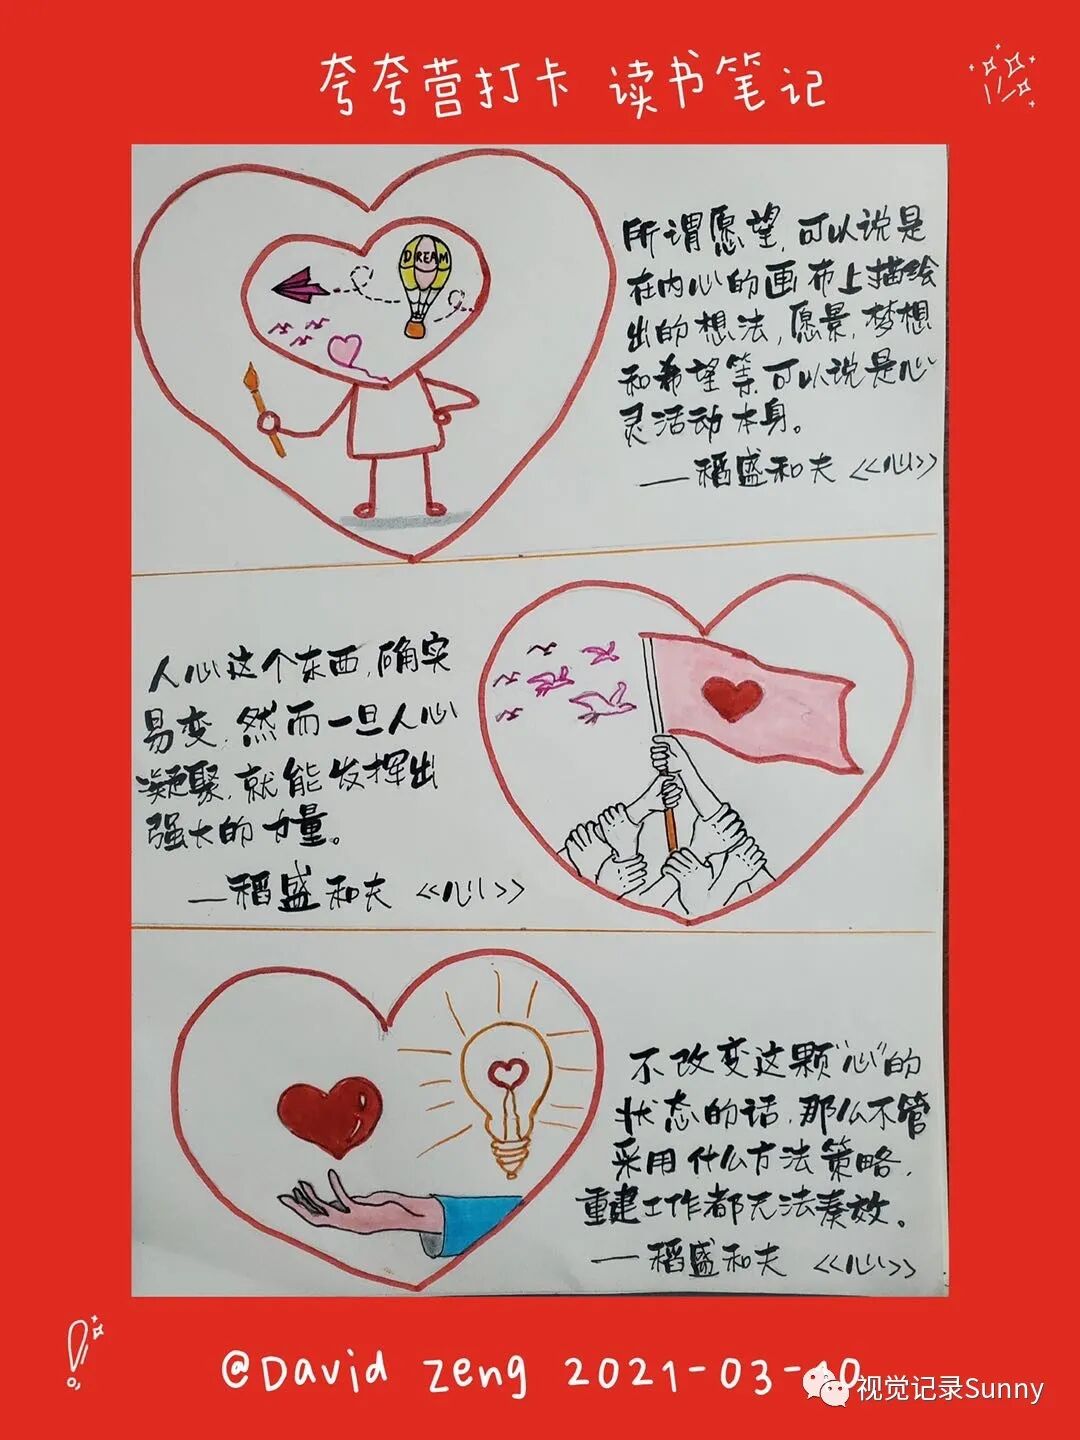 夸夸营打卡 读书笔记
DREAM
所谓愿望,可以说是
在内心的画布上描绘
出的想法,愿景,梦想
和希望等,可以说是心
灵活动本身。
——稻盛和夫《心》
人心这个东西,确实
易变,然而一旦人心
凝聚,就能发挥出
强大的力量。
——稻盛和夫《心》
不改变这颗“心”的
状态的话,那么不管
采用什么方法策略,
重建工作都无法奏效。
——稻盛和夫《心》
@David Zeng 2021-03-10
视觉记录Sunny